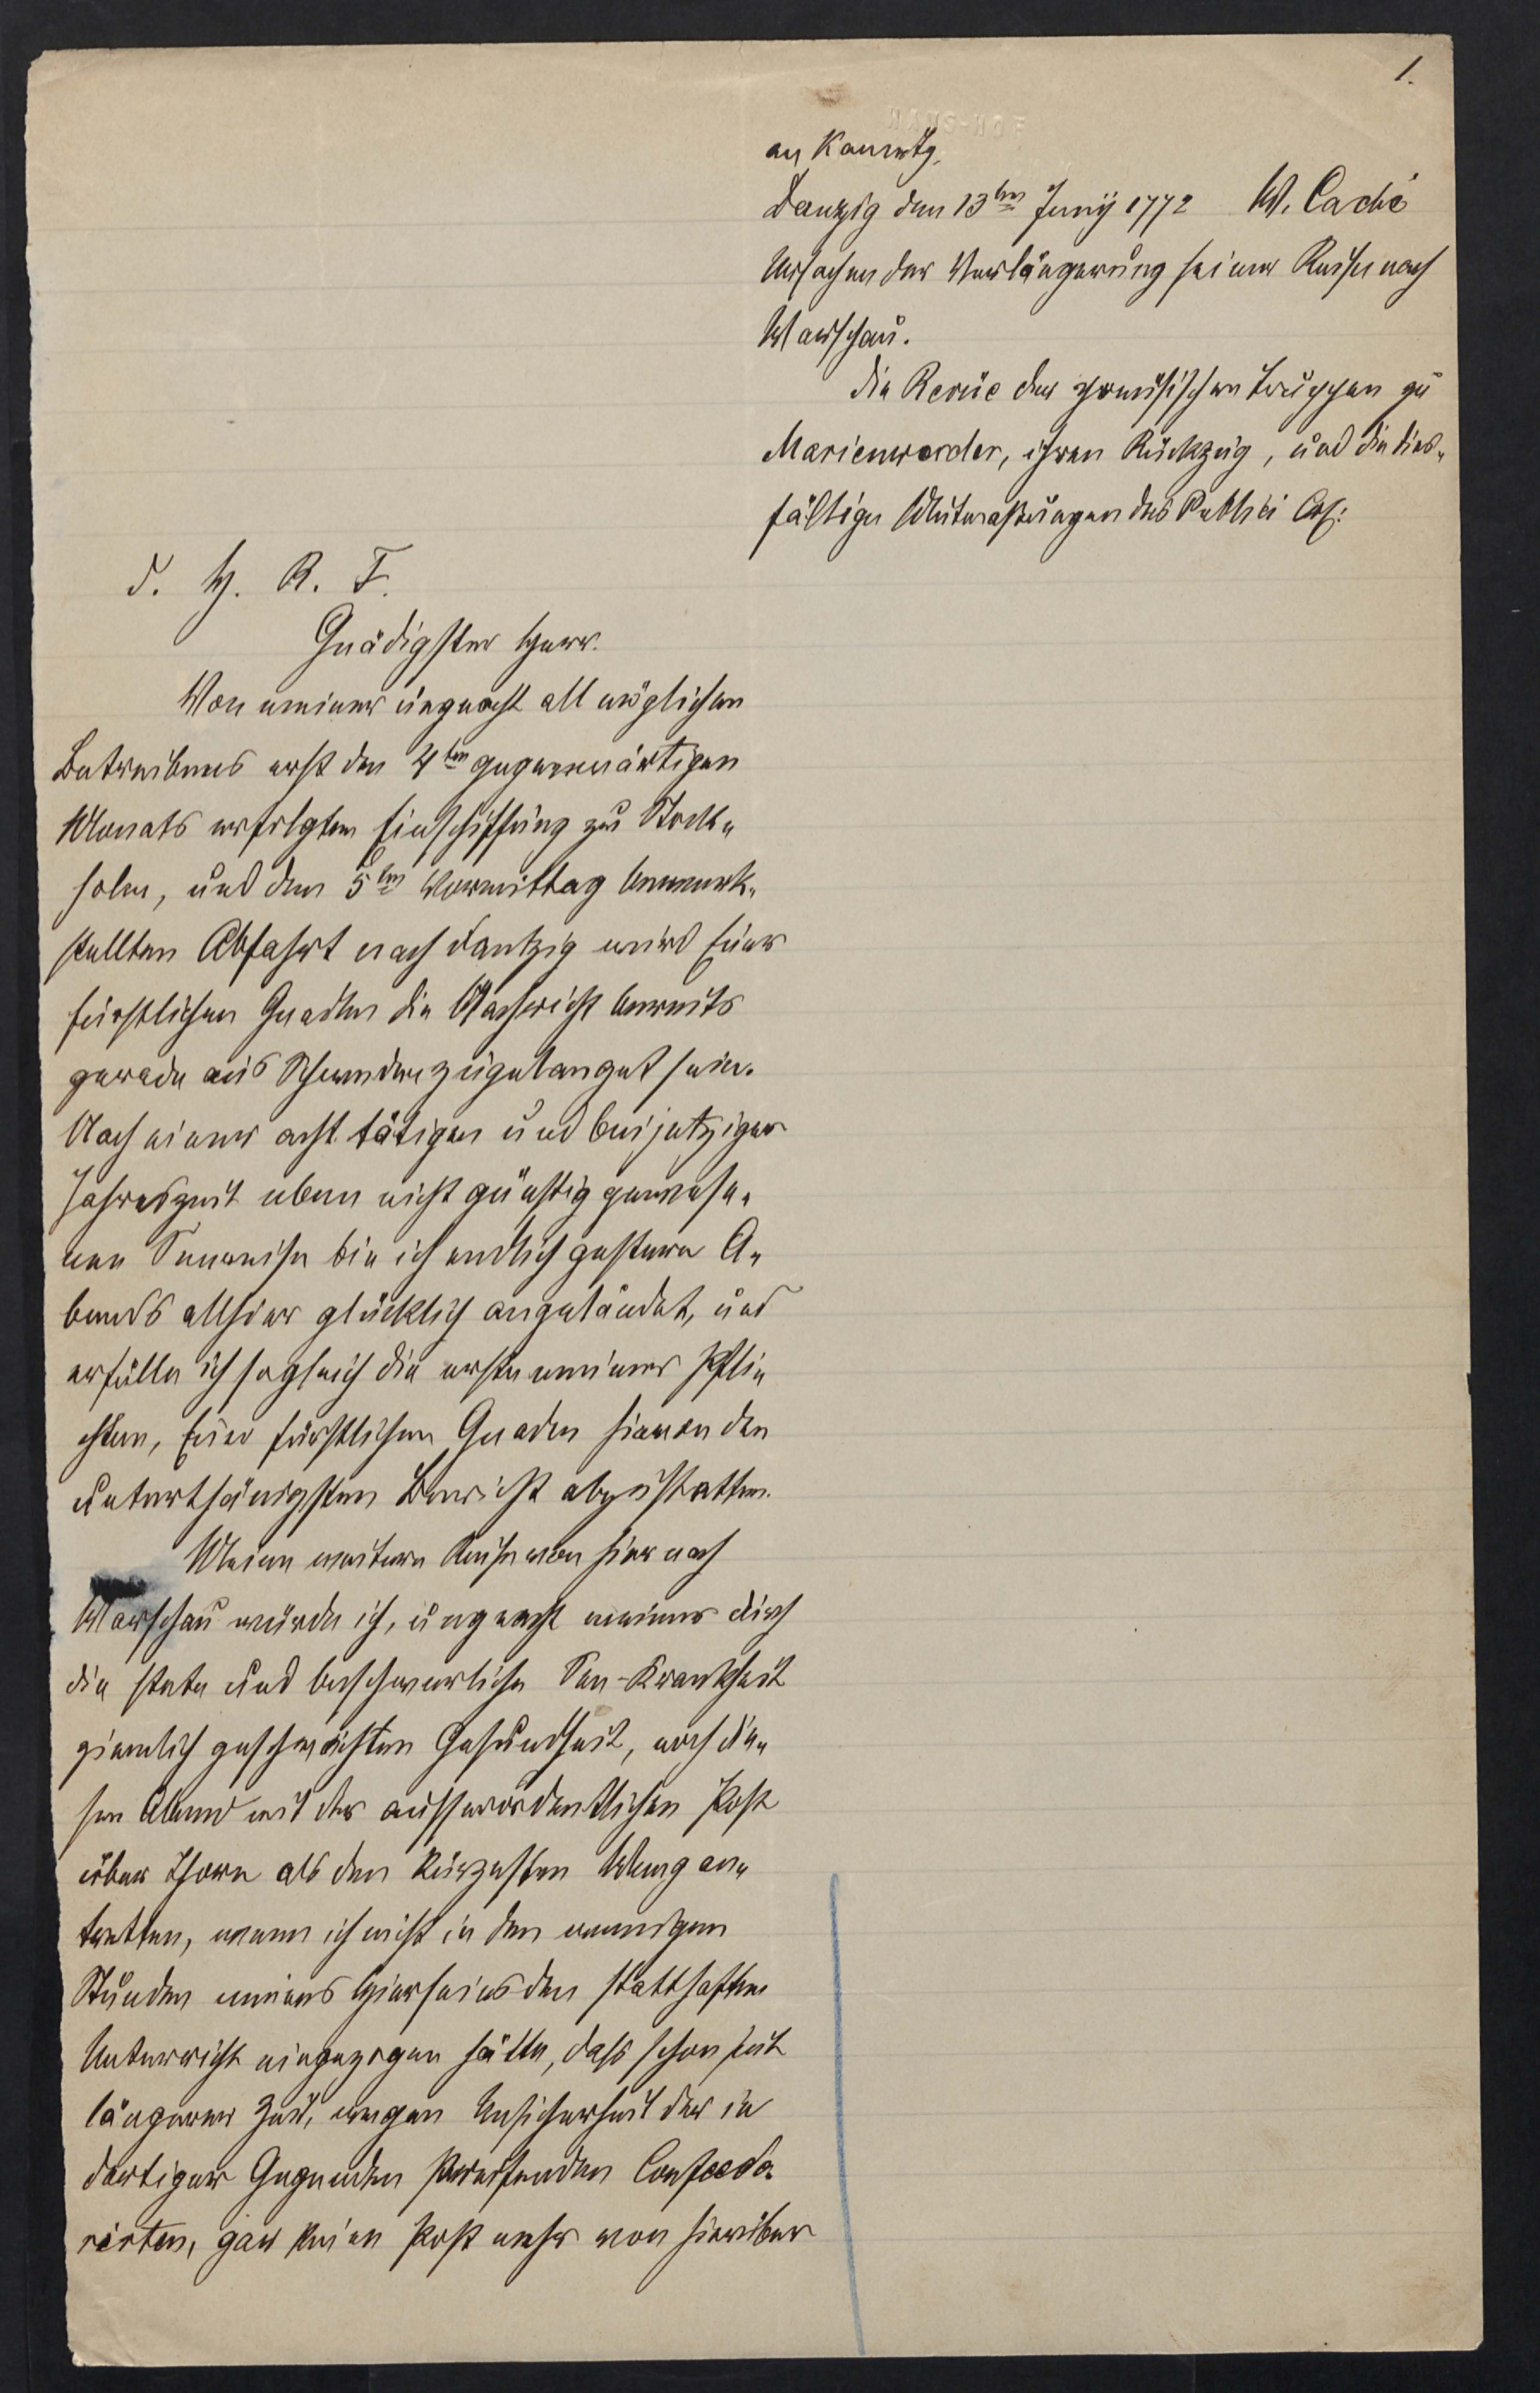 1.
an Kaunitz.
Danzig den 13ten Junij 1772 W. Caché
Ursachen der Verlängerung seiner Reise nach
Warschau.
die Revüe der preusischen truppen zu
Marienwerder, ihren Rückzug, und die dies-
fältigen Mutmassungen des Publici
d. H. R. F.
Gnädigster Herr.
Von meiner ungeacht all möglichen
Betreibens erst den 4ten gegenwärtigen
Monats erfolgten Einschiffung zu Stock-
holm, und den 5ten Vormittag bewerk-
stellten Abfahrt nach Dantzig wird Euer
fürstlichen Gnaden die Nachricht bereits
gerade aus Schweden zugelanget sein.
Nach einer acht tätigen und bei jetziger
Jahreszeit eben nicht günstig gewese-
nen Seereise bin ich endlich gestern A-
bends allhier glücklich angeländet, und
erfülle ich sogleich die erste meiner Pfli-
chten, Euer fürstlichen Gnaden hievon den
unterthänigsten Bericht abzustatten.
Meine weitere Reise von hier nach
Warschau würde ich, ungeacht meiner durch
die stete und beschwerliche See-Krankheit
ziemlich geschwächten Gesundheit, noch die-
sen Abend mit der ausserordentlichen Post
über Thorn als den kürzesten Weeg an-
tretten, wenn ich nicht in den wenigen
Stunden meines Hierseins den statthaften
Unterricht eingezogen hätte, dass schon seit
längerer Zeit, wegen Unsicherheit der in
dortiger Gegenden streifenden Confoede-
rirten, gar keine Post mehr von hierüber